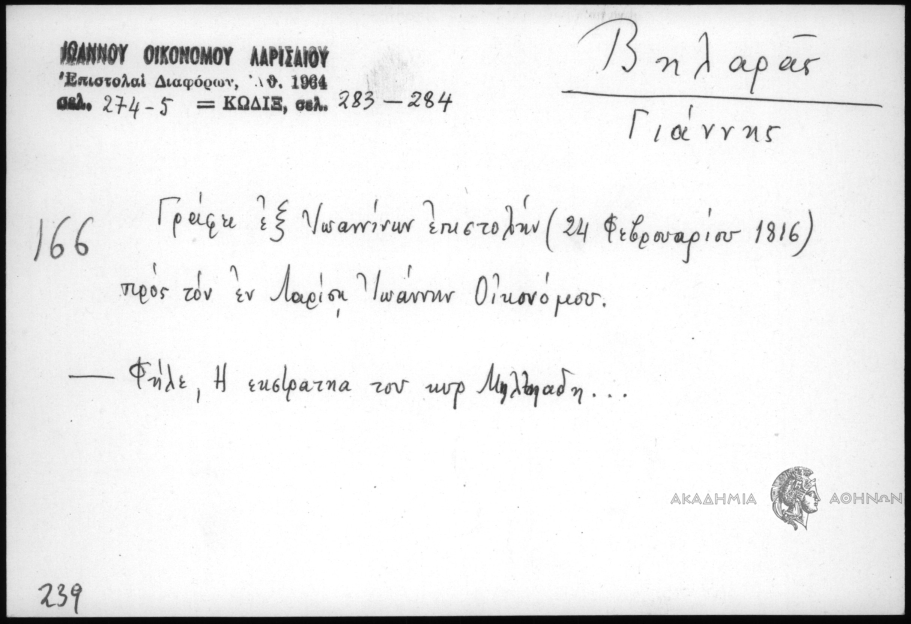 ΙΩΑΝΝΟΥ ΟΙΚΟΝΟΜΟΥ ΛΑΡΙΣΑΙΟΥ
Ἐπιστολαί Διαφόρων, Ἀθ. 1964
σελ. 274-5 = ΚΩΔΙΞ, σελ. 283-284
Βηλαρᾶς
Γιάννης
166
Γράφει ἐξ Ἰωαννίνων ἐπιστολήν (24 Φεβρουαρίου 1816)
πρός τόν ἐν Λαρίσῃ Ἰωάννην Οἰκονόμου.
— Φήλε, Η εκσβρατηα του κυρ Μηλτηαδη...
ΑΚΑΔΗΜΙΑ ΑΘΗΝΩΝ
239